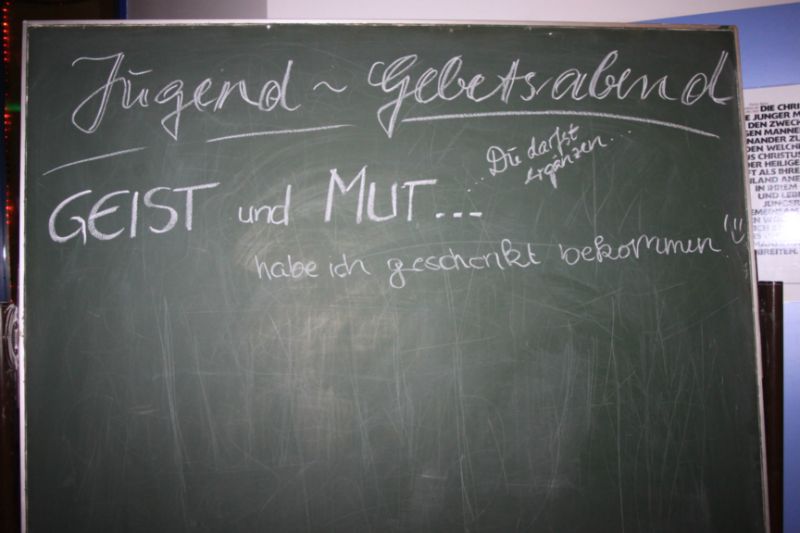 Jugend ~ Gebetsabend
... Du darfst
ergänzen...
GEIST und MUT...
habe ich geschenkt bekommen!
DIE CHRI
E JUNGER M
DEN ZWECK
GEN MÄNNE
NANDER ZU
DEN WELCHE
US CHRISTUS
DER HEILIGE
T ALS IHRE
ILAND ANE
IN IHREM
UND LEBE
JÜNGER
BREITEN.